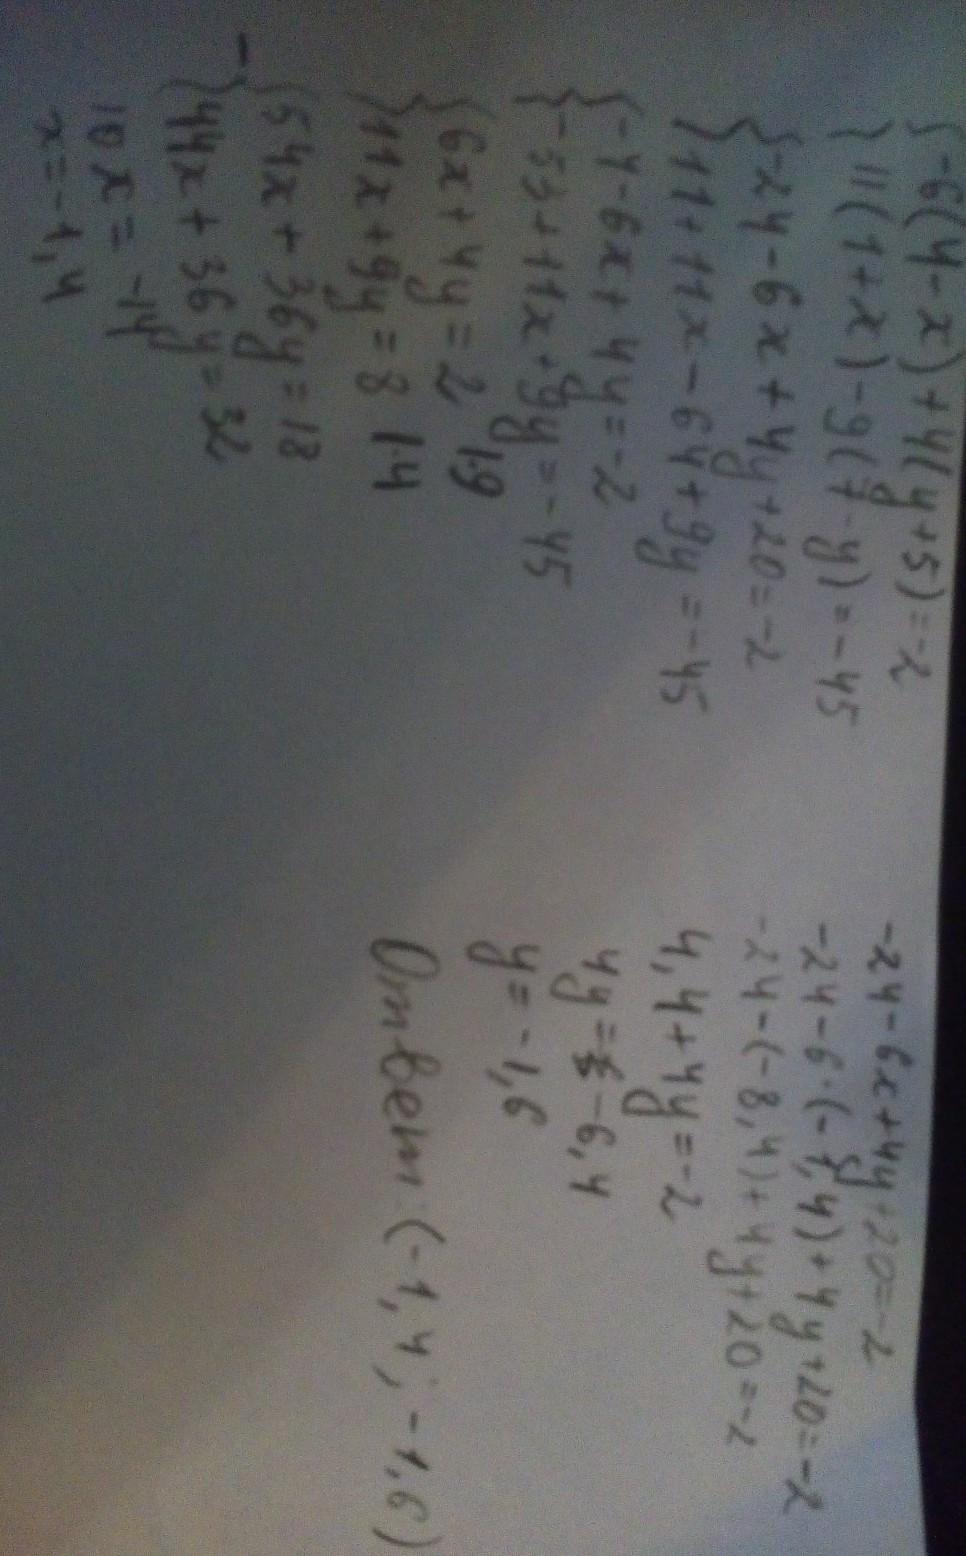 {-6(4-x)+4(y+5)=-2
{11(1+x)-9(7-y)=-45
{-24-6x+4y+20=-2
{11+11x-64+9y=-45
{-4-6x+4y=-2
{-53+11x+9y=-45
{6x+4y=2 |·9
{11x+9y=8 |·4
-{54x+36y=18
{44x+36y=32
10x=-14
x=-1,4
-24-6x+4y+20=-2
-24-6·(-1,4)+4y+20=-2
-24-(-8,4)+4y+20=-2
4,4+4y=-2
4y=-6,4
y=-1,6
Ответ: (-1,4; -1,6)